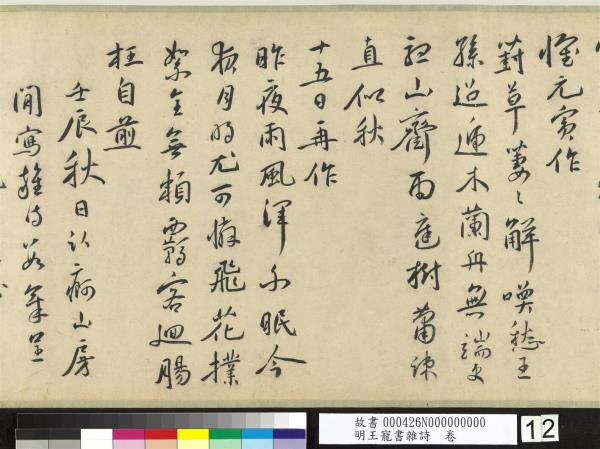 懷元賓作
葑草萋々解喚愁王
孫迢遞木蘭舟無端更
聽山齋雨庭樹蕭疎
直似秋
十五日再作
昨夜雨風渾不眠今
夜月明尤可憐飛花撲
絮全無賴羈客迴腸
枉自煎
壬辰秋日以痾山房
閒寫雜詩
故書 000426N000000000
明王寵書雜詩 卷
12